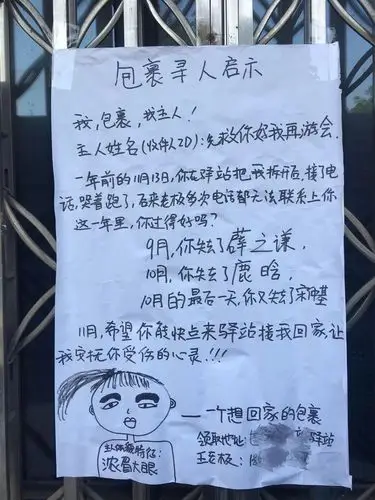 包裹寻人启示
我,包裹,找主人!
主人姓名(收件人ID):先救你妈我再游会.
一年前的11月13日,你在驿站把我拆开后,接了电
话,哭着跑了,后来老板多次电话都无法联系上你
这一年里,你过得好吗?
9月,你失去了薛之谦,
10月,你失去了鹿晗,
10月的最后一天,你又失去了宋仲基
11月,希望你能快点来驿站接我回家,让
我安抚你受伤的心灵!!!
——一个想回家的包裹
领取地址: 驿站
王老板:
主人体貌特征:
浓眉大眼